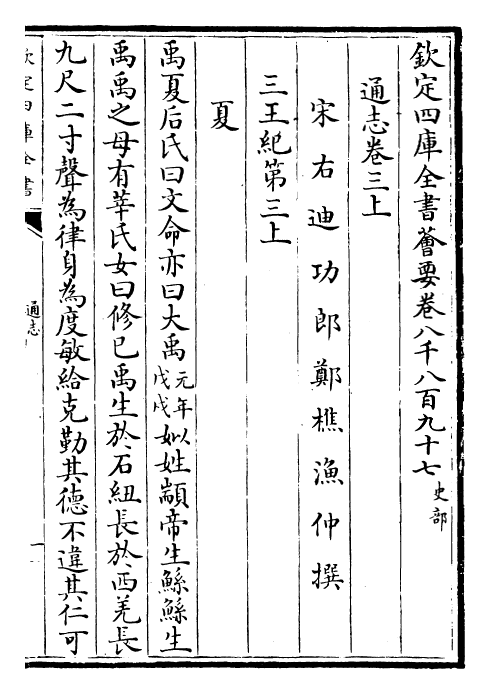 欽定四庫全書薈要卷八千八百九十七 史部
通志卷三上
宋右迪功郎鄭樵漁仲撰
三王紀第三上
夏
禹夏后氏曰文命亦曰大禹元年戊戌姒姓顓帝生鯀鯀生
禹禹之母有莘氏女曰修已禹生於石紐長於西羌長
九尺二寸聲為律身為度敏給克勤其德不違其仁可
欽定四庫全書
通志
一